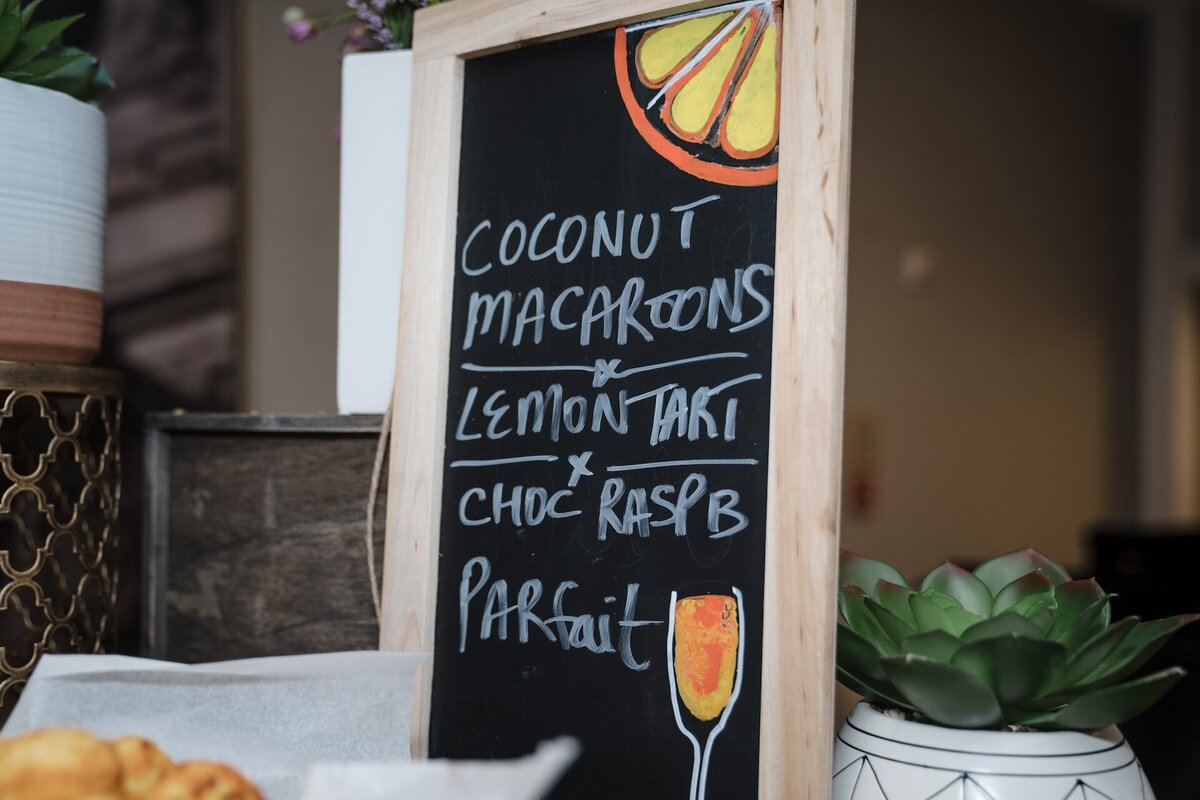 COCONUT
MACAROONS
LEMON TART
CHOC RASPB
PARfait